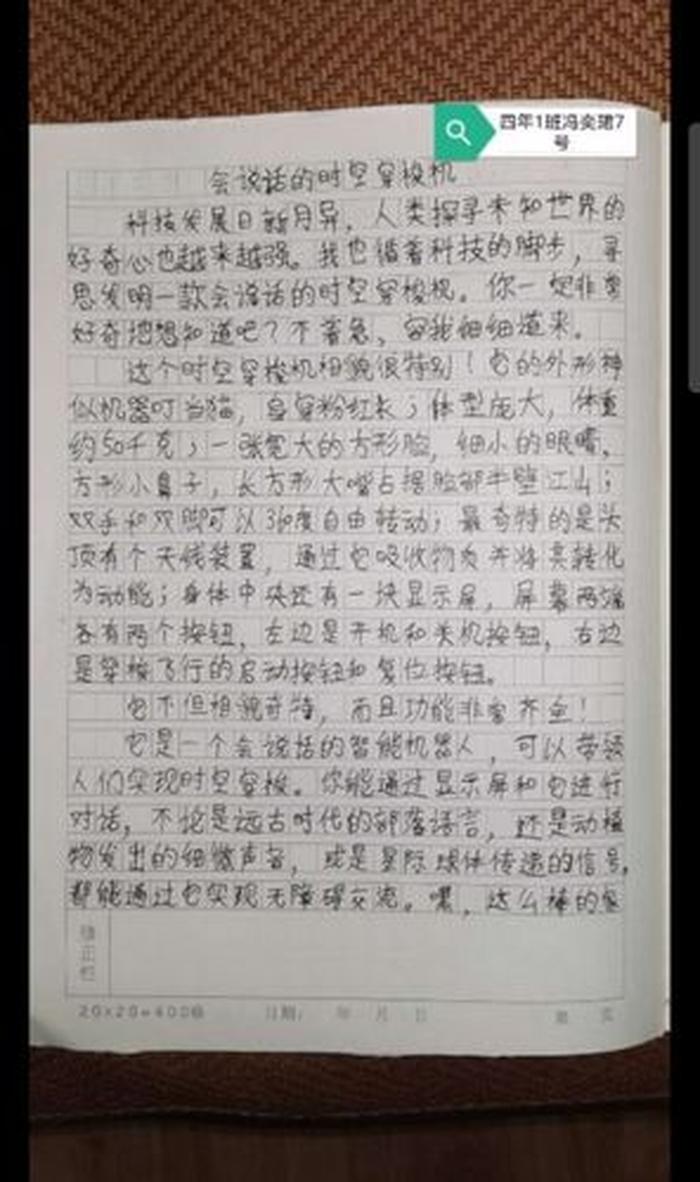 四年1班冯奕珺7
号
会说话的时空穿梭机
科技发展日新月异，人类探寻未知世界的
好奇心也越来越强。我也循着科技的脚步，寻
思发明一款会说话的时空穿梭机。你一定非常
好奇地想知道吧？不着急，容我细细道来。
这个时空穿梭机相貌很特别！它的外形神
似机器叮当猫，身穿粉红衣；体型庞大，体重
约50千克；一张宽大的方形脸，细小的眼睛，
方形小鼻子，长方形大嘴占据脸部半壁江山；
双手和双脚可以360度自由转动；最奇特的是头
顶有个天线装置，通过它吸收物质并将其转化
为动能；身体中央还有一块显示屏，屏幕两端
各有两个按钮，左边是开机和关机按钮，右边
是穿梭飞行的启动按钮和复位按钮。
它不但相貌奇特，而且功能非常齐全！
它是一个会说话的智能机器人，可以带领
人们实现时空穿梭。你能通过显示屏和它进行
对话，不论是远古时代的部落语言，还是动植
物发出的细微声音，或是星际球体传递的信号，
都能通过它实现无障碍交流。嘿，这么棒的
修正栏
20×20=400 日期： 年 月 日 第 页